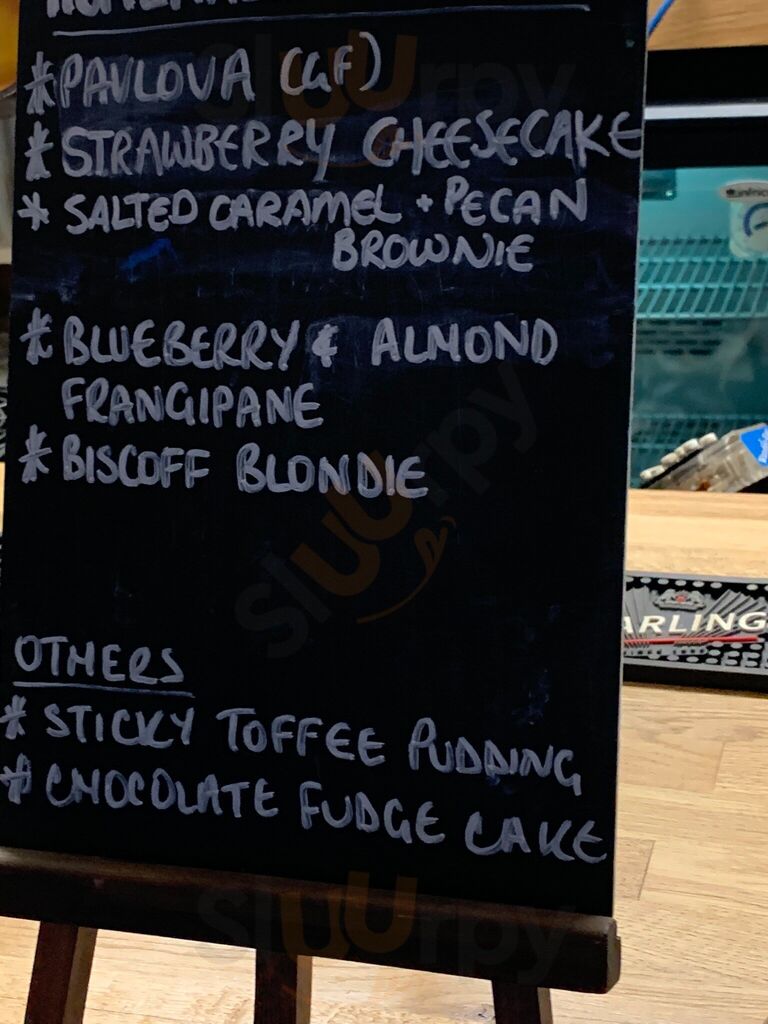 * PAVLOVA (GF)
* STRAWBERRY CHEESECAKE
* SALTED CARAMEL + PECAN
BROWNIE
* BLUEBERRY & ALMOND
FRANGIPANE
* BISCOFF BLONDIE
OTHERS
* STICKY TOFFEE PUDDING
* CHOCOLATE FUDGE CAKE
ARLING
sluurpy
sluurpy
sluurpy